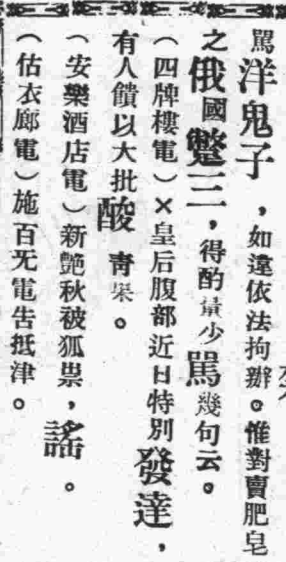 罵洋鬼子，如違依法拘辦。惟對賣肥皂
之俄國蹩三，得酌量少罵幾句云。
（四牌樓電）×皇后腹部近日特別發達，
有人饋以大批酸青菓。
（安樂酒店電）新艶秋被狐祟，謠。
（估衣廊電）施百无電告抵津。